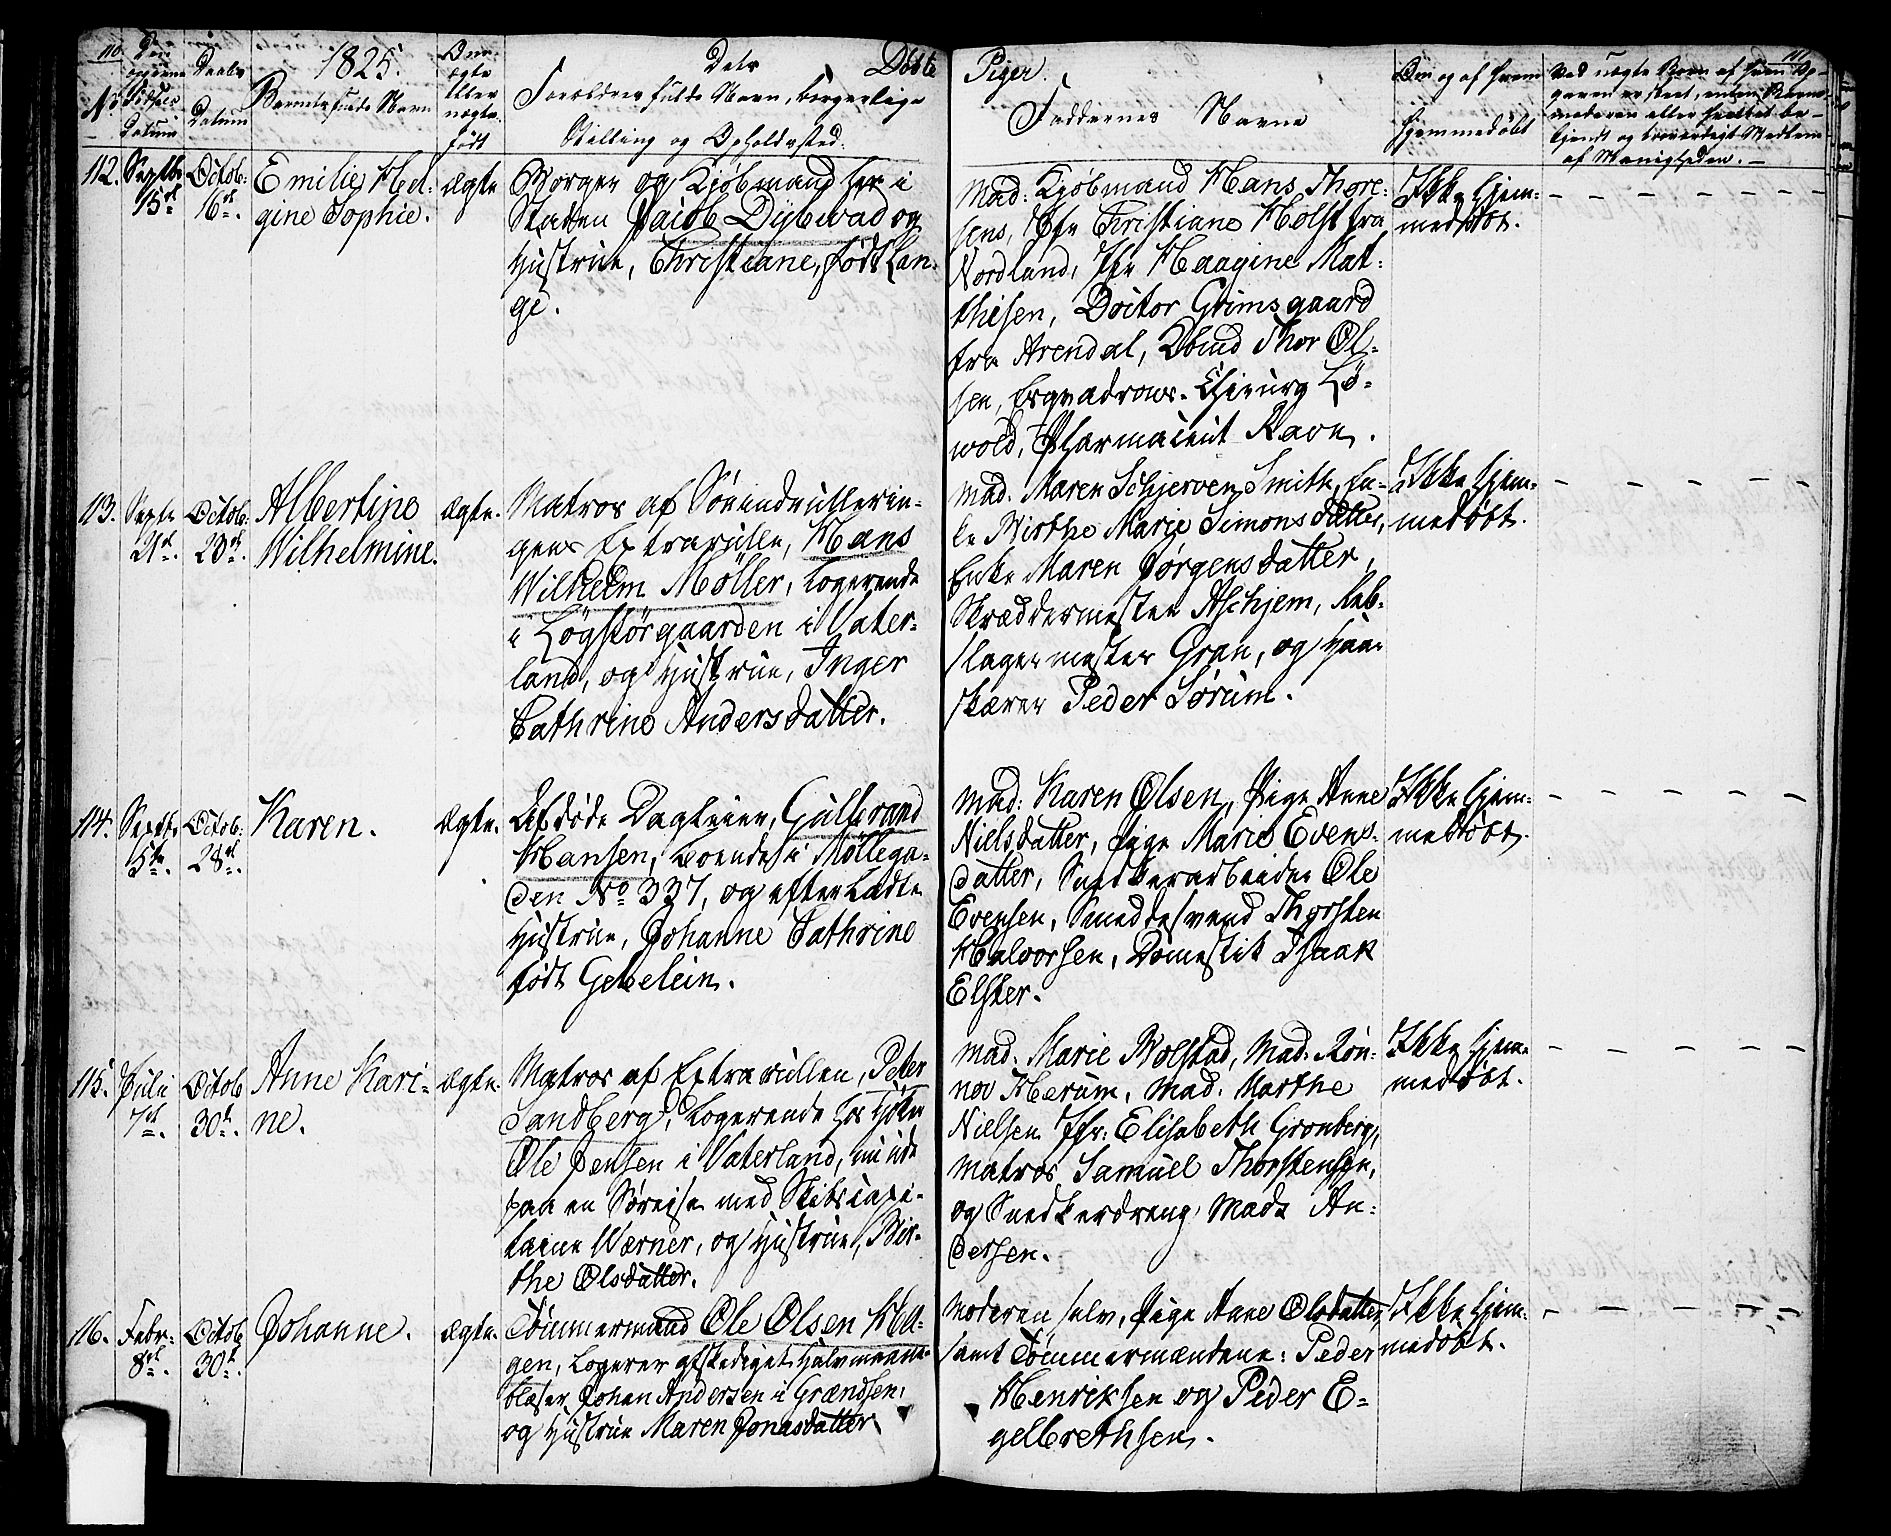 110.
1825.
Døbte
Piger.
111.
No
Den
Fødsels
Datum
Daabs
Datum
Barnets fulde Navn
Om
ægte
eller
uægte
født
Forældres fulde Navn, borgerlige
Stilling og Opholdssted.
Faddernes Navne
Om og af hvem
hjemmedøbt
112.
Septbr
15de.
Octob:
16de.
Emilie Hel-
gine Sophie.
Ægte
Borger og Kjøbmand her i
Staden Jacob Dybwad og
Hustrue, Christiane, født Lan-
ge.
Mad: Kjøbmand Hans Thore-
sens, Jfr Christiane Holst fra
Nordland, Jfr Haagine Mat-
thisen, Doctor Grimsgaard
fra Arendal, Kbmd Thor Ol-
sen, Esqvadrons-Chirurg Lø-
wold, Pharmaceut Ravn.
Ikke hjem-
medøbt.
113.
Septe
21de.
Octob:
23de.
Albertine
Wilhelmine.
Ægte.
Matros af Søeindrullerin-
gens Extrarulle, Hans
Wilhelm Möller, Logerende
i Løgstørgaarden i Vater-
land, og Hustrue, Inger
Cathrine Andersdatter.
Mad. Maren Schjerven Smith, En-
ke Birthe Marie Simonsdatter,
Enke Maren Jørgensdatter,
Skræddermester Aschjem, Reb-
slagermester Gran, og Haar-
skærer Peder Sørum.
Ikke hjem-
medøbt.
114.
Septbr
5te.
Octob:
28de.
Karen.
Ægte.
Afdøde Dagleier, Gulbrand
Hansen, boende i Møllega-
den No 337, og efterladte
Hustrue, Johanne Cathrine
født Gebelein.
Mad: Karen Olsen, Pige Anne
Nielsdatter, Pige Marie Evens-
datter, Snedkerarbeider Ole
Evensen, Smeddesvend Thorsten
Halvorsen, Domestik Isaak
Elster.
Ikke hjem-
medøbt.
115.
Julii
7de.
Octob
30te.
Anne Kari-
ne.
Ægte.
Matros af Extrarullen, Peter
Sandberg, Logerende hos Høker
Ole Jensen i Vaterland, nu ude
paa en Søreise med Skibscapi-
taine Wærner, og Hustrue, Bir-
the Olsdatter.
Mad. Marie Wolstad, Mad. Røn-
nov Herum, Mad. Marthe
Nielsen Jfr: Elisabeth Gronberg,
Matros Samuel Thorstensen,
og Snedkerdreng Mads An-
dersen.
Ikke hjem-
medøbt.
116.
Febr:
8de.
Octob
30te.
Johanne.
Ægte.
Tømmermand Ole Olsen Hel-
gen, Logerer afskediget Halvmaane-
blæser Johan Andersen i Grændsen,
og Hustrue Maren Jonasdatter
Moderen selv, Pige Anne Olsdatter,
samt Tømmermændene: Peder
Henriksen og Peder E-
gelbrethsen.
Ikke hjem-
medøbt.